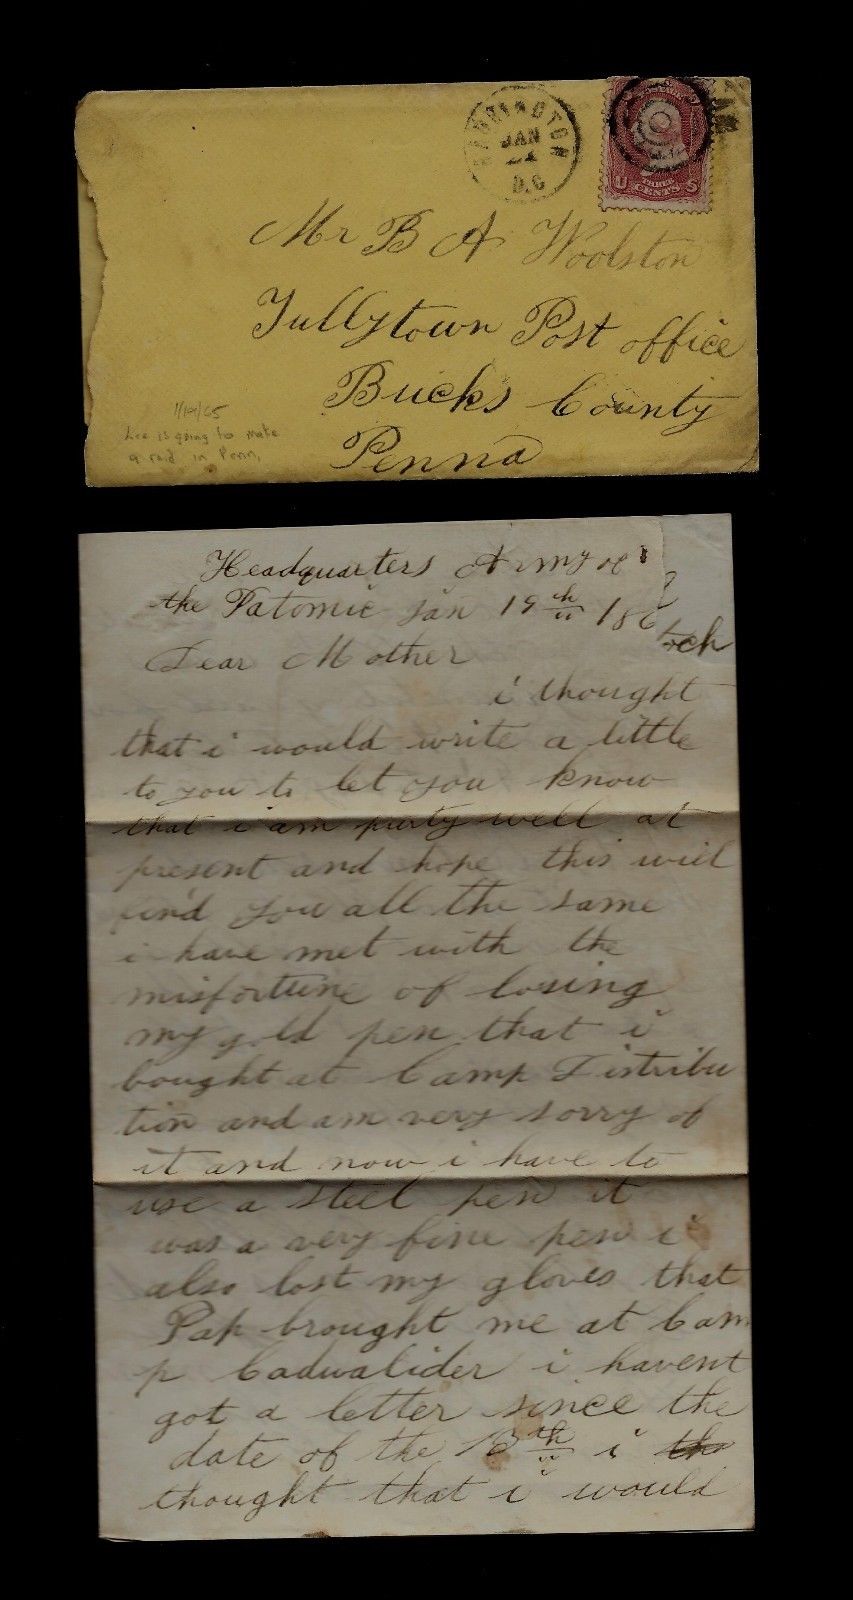 WASHINGTON
JAN
D.C
U THREE S
CENTS
Mr B A Woolston
Tullytown Post office
Bucks County
Penna
1/19/65
Lee is going to make
a raid in Penn.
Headquarters Army of
the Patomic Jan 19th 186
Dear Mother
i thought
that i would write a little
to you to let you know
that i am purty well at
present and hope this will
find you all the same
i have met with the
misfortune of losing
my gold pen that i
bought at Camp Distribu
tion and am very sorry of
it and now i have to
use a steel pen it
was a very fine pen i
also lost my gloves that
Pap brought me at Cam
p Cadwalider i havent
got a letter since the
date of the 13th i th
thought that i would